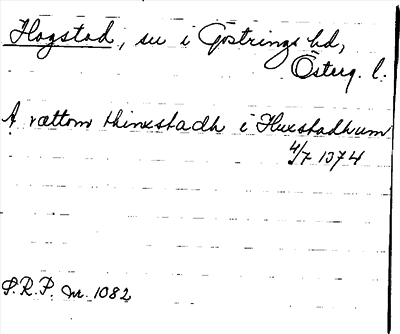 Hogstad, sn i Göstrings hd,
Österg. l.
A rættom thinxstadh i Huxstadhum
4/7 1374
S.R.P. nr. 1082